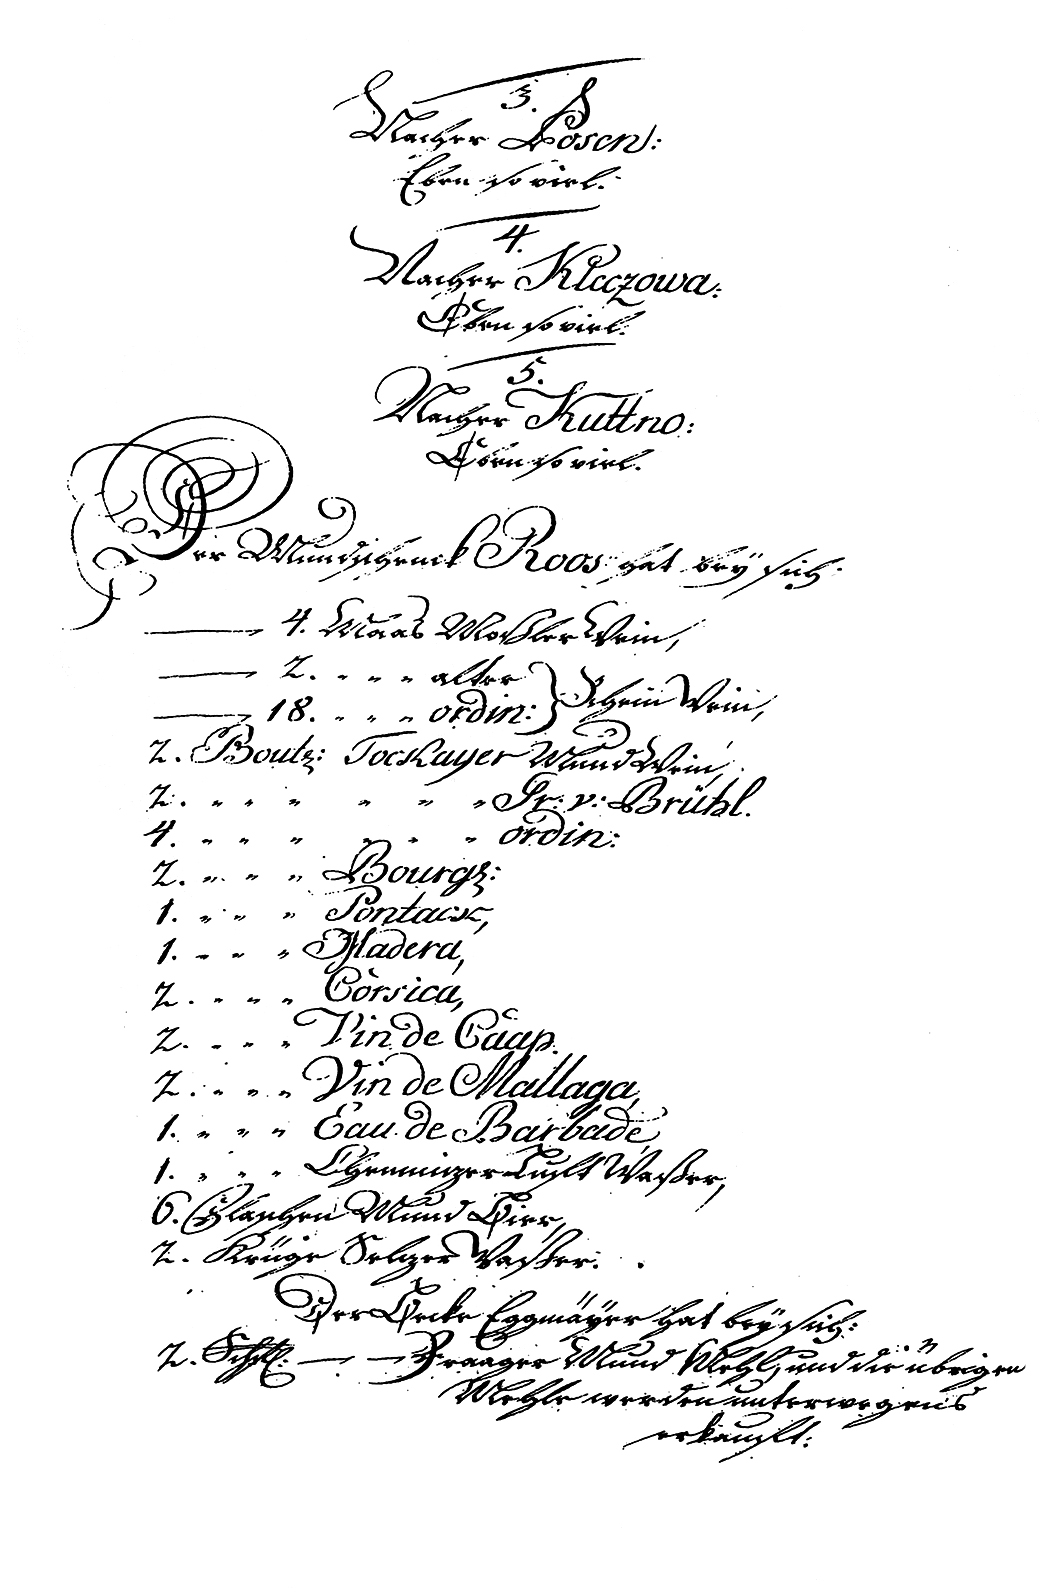 3.
Nacher Posen:
Eben so viel.
4.
Nacher Kleczowa:
Eben so viel.
5.
Nacher Kuttno:
Eben so viel.
Der Mundschenck Roos hat bey sich:
— 4. Maas Moßler Wein,
— 2. " " " alter
— 18. " " " ordin: } Rhein Wein,
2. Boutz: Tockayer Mund Wein,
2. " " " " " " Gr: v: Brühl.
4. " " " " " " ordin:
2. " " " Bourg:
1. " " " Pontack,
1. " " " Madera,
2. " " " Corsica,
2. " " " Vin de Caap.
2. " " " Vin de Mallaga,
1. " " " Eau de Barbade,
1. " " " Wasser,
6. Flaschen Mund Bier,
2. Krüge Selzer Waßer.
Der Becke Eggmäyer hat bey sich:
2. Schfl: — — Praager Mund Mehl, und die übrigen
Mehle werden unterwegens
erkaufft: